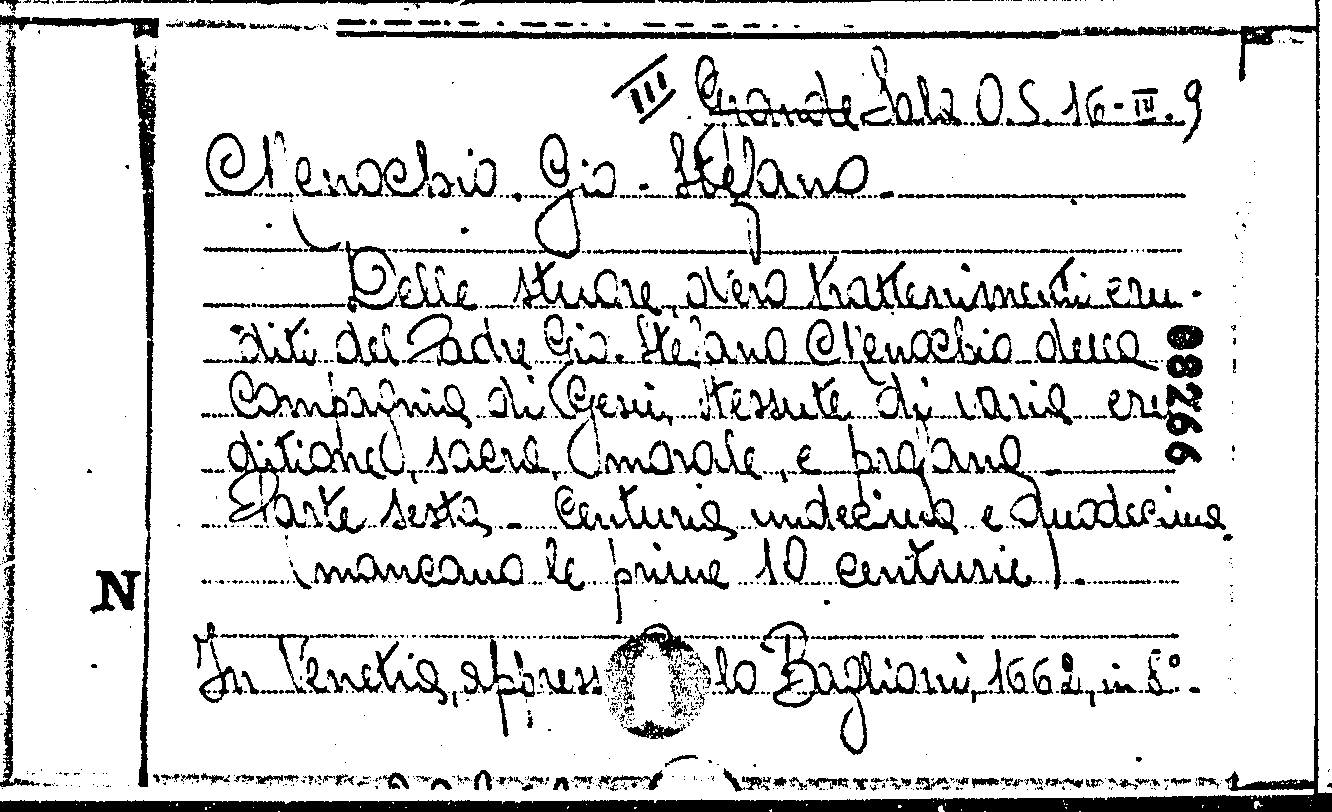 III Grande Sala O.S. 16-III.9
Menochio, Gio. Stefano.
Delle stuore, overo trattenimenti eru-
diti del Padre Gio. Stefano Menochio della
Compagnia di Gesù, tessute di varia eru
ditione, sacra, morale, e profana.
Parte sesta - Centuria undecima e duodecima
(mancano le prime 10 centurie).
In Venetia, appress lo Baglioni, 1662, in 8°.
08266
N